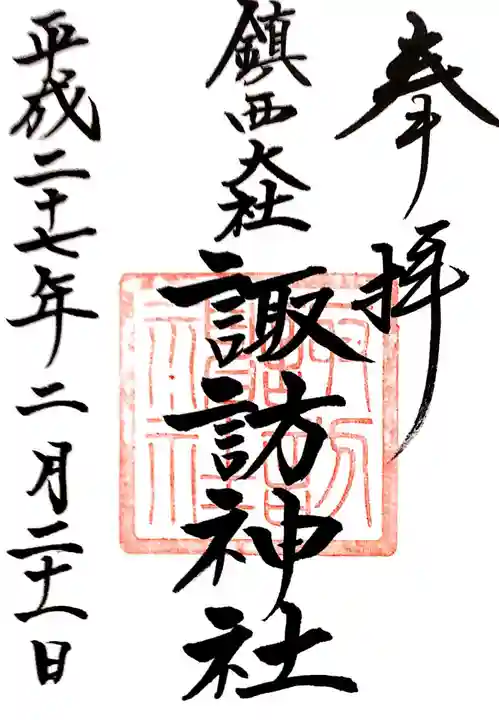 奉拝
鎮西大社
諏訪神社
平成二十七年二月二十一日